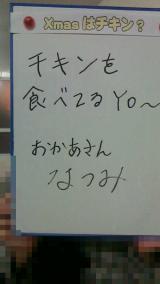 Xmasはチキン？
チキンを
食べてるYO～
おかあさん
なつみ